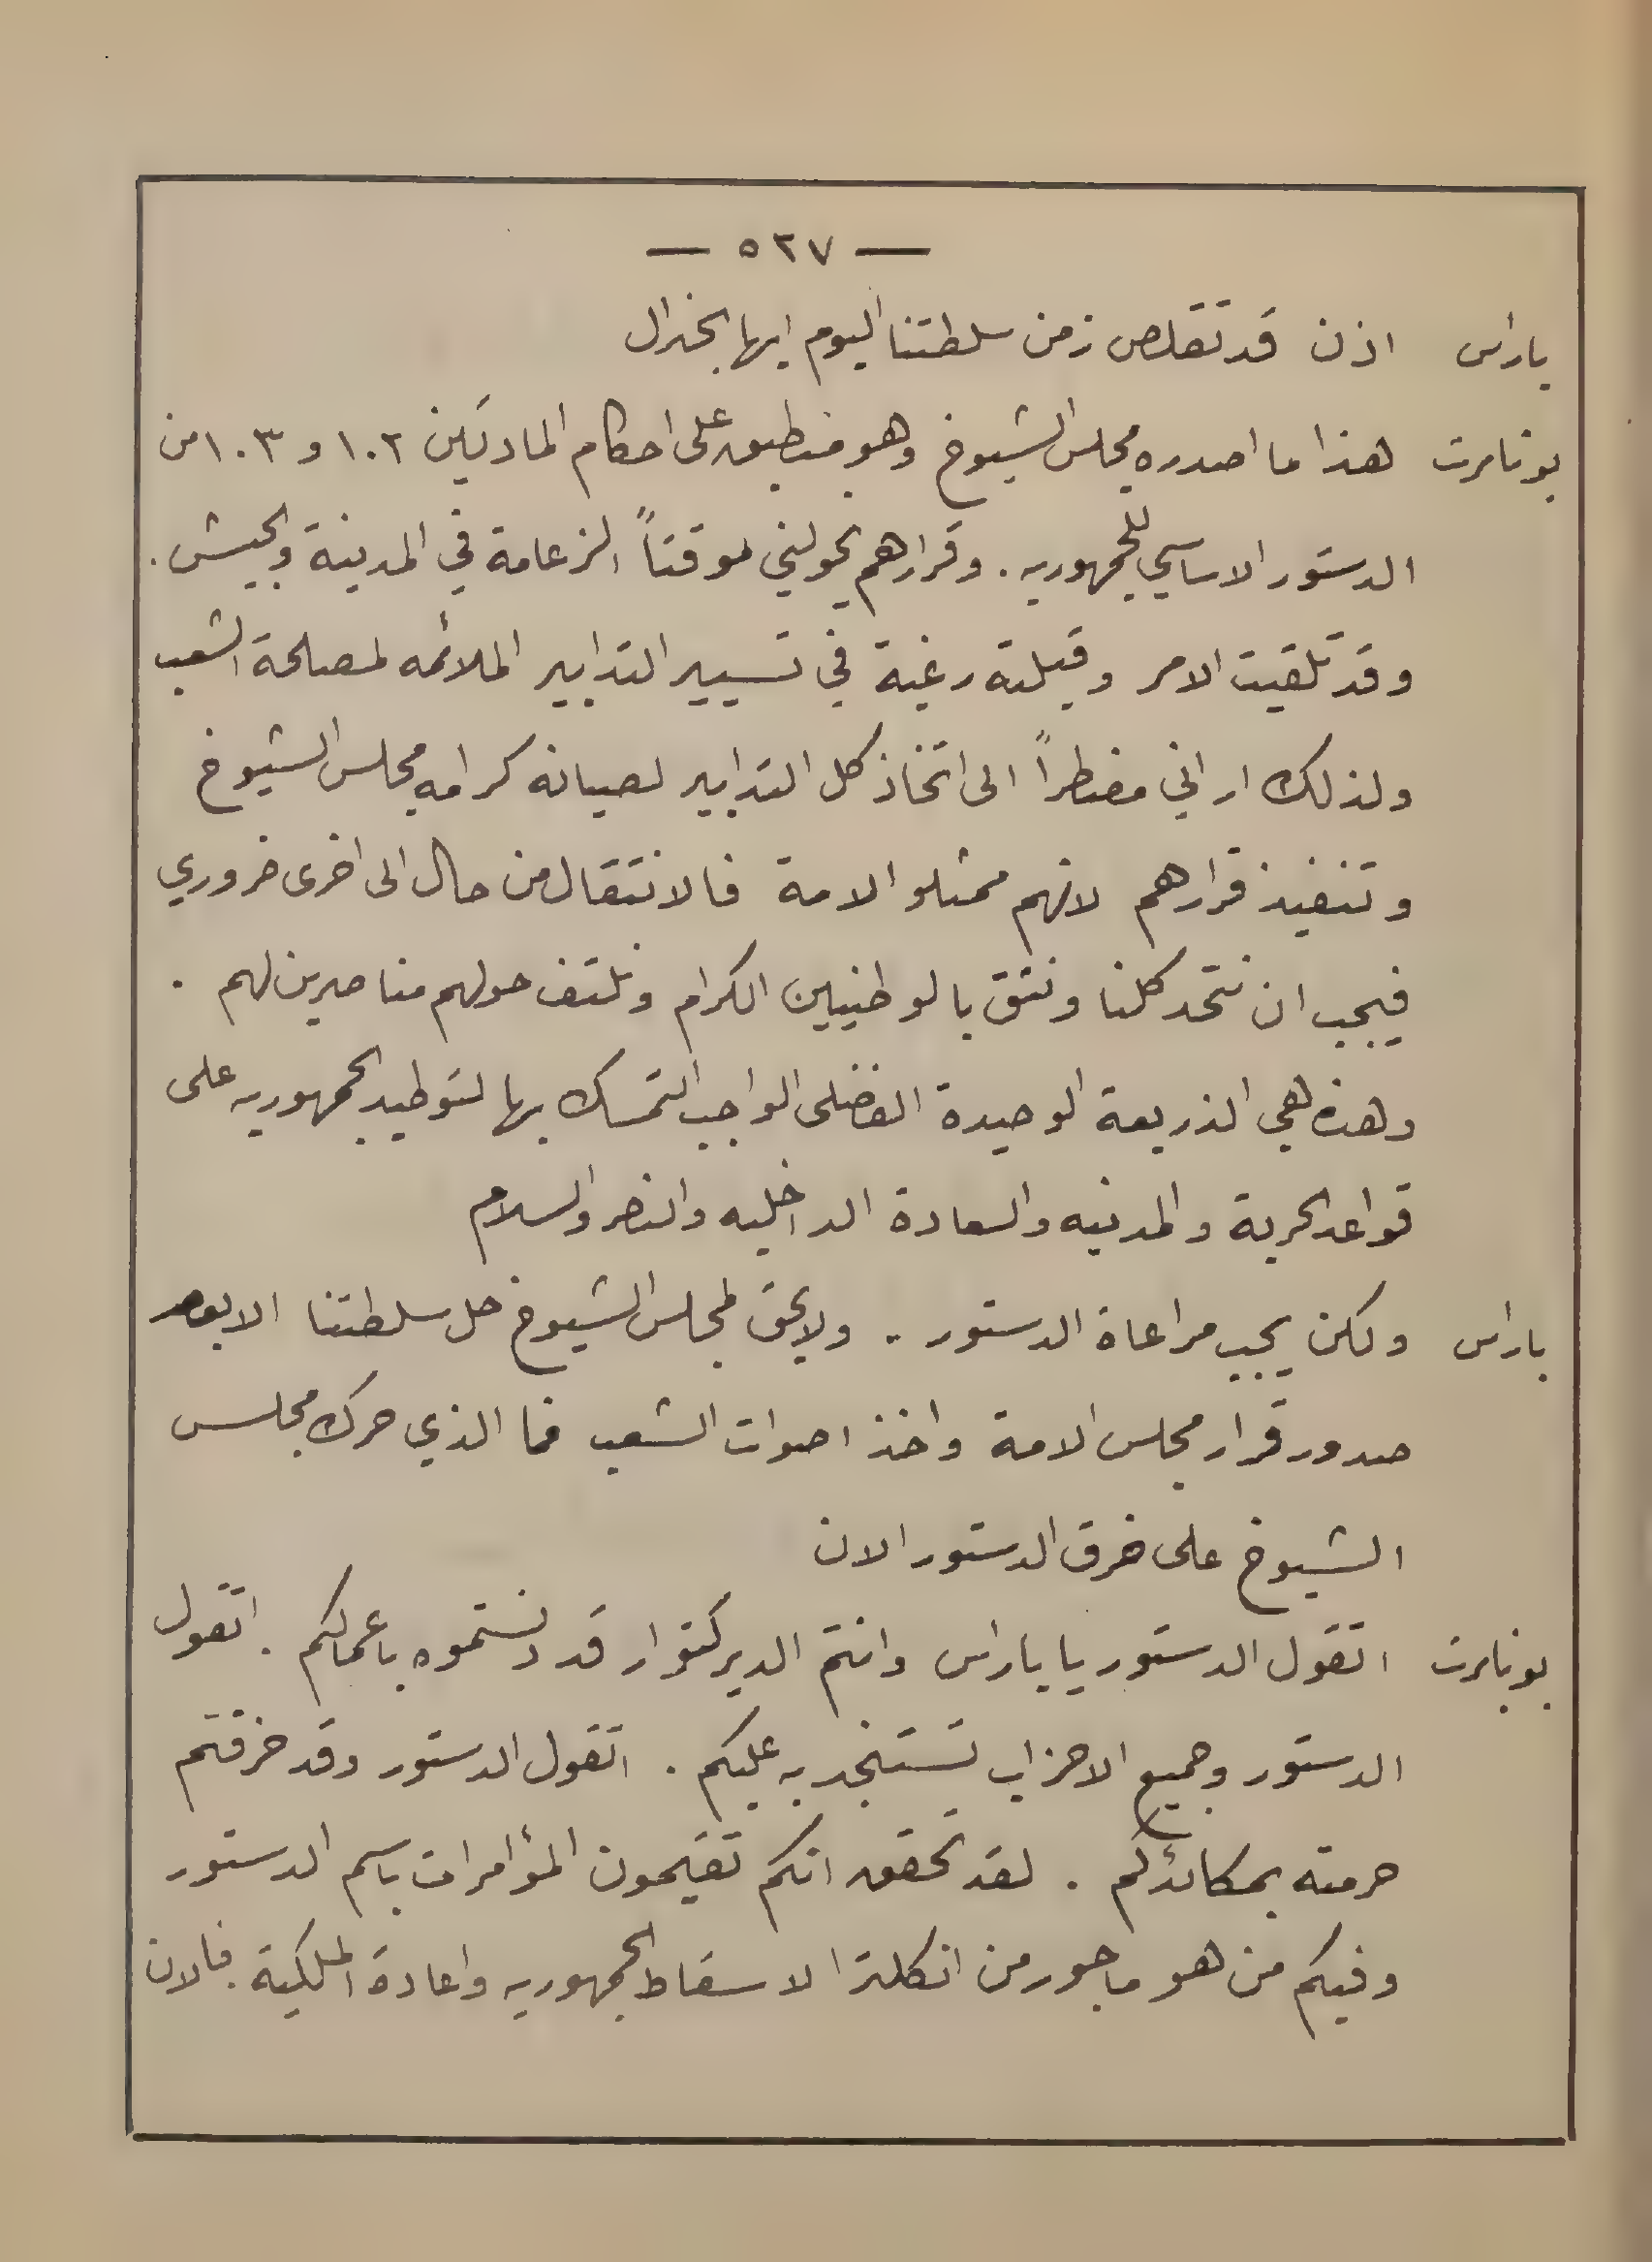 — ٥٢٧ —
باراس اذن قد تقلص زمن سلطتنا اليوم ايها الجنرال
بونابرت هذا ما اصدره مجلس الشيوخ وهو منطبق على احكام المادتين ١٠٢ و ١٠٣ من
الدستور الاساسي للجمهوريه . وقرارهم يخولني موقتاً الزعامة في المدينة والجيش .
وقد تلقيت الامر وقبلته رغبة في تسيير التدابير الملائمه لمصلحة الشعب
ولذلك اراني مضطراً الى اتخاذ كل التدابير لصيانه كرامه مجلس الشيوخ
وتنفيذ قرارهم لانهم ممثلو الامة فالانتقال من حال الى اخرى ضروري
فيجب ان نتحد كلنا ونثق بالوطنيين الكرام ونلتف حولهم مناصرين لهم .
وهذه هي الذريعة الوحيدة الفضلى الواجب التمسك بها لتوطيد الجمهوريه على
قواعد الحرية والمدنيه والسعادة الداخليه والنصر والسلام
باراس ولكن يجب مراعاة الدستور . ولا يحق لمجلس الشيوخ حل سلطتنا الا بعد
صدور قرار مجلس الامة واخذ اصوات الشعب فما الذي حرك مجلس
الشيوخ على خرق الدستور الان
بونابرت اتقول الدستور يا باراس وانتم الديركتوار قد دنستموه باعمالكم . اتقول
الدستور وجميع الاحزاب تستنجد به عليكم . اتقول الدستور وقد خرقتم
حرمته بمكائدكم . لقد تحقق انكم تقيمون المؤامرات باسم الدستور
وفيكم من هو ماجور من انكلترا لاسقاط الجمهوريه واعادة الملكية . فالان